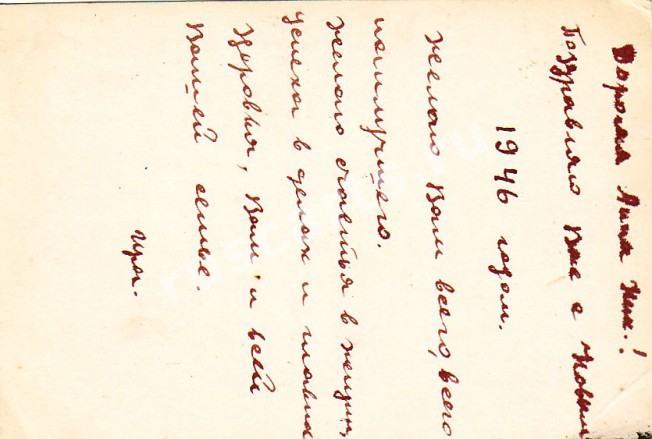 Дорогая Анна Ник.!
Поздравляю Вас с Новым
1946 годом.
Желаю Вам всего, всего
наилучшего.
Желаю счастья в жизни,
успеха в делах и главное
здоровья, Вам и всей
Вашей семье.
Ира.